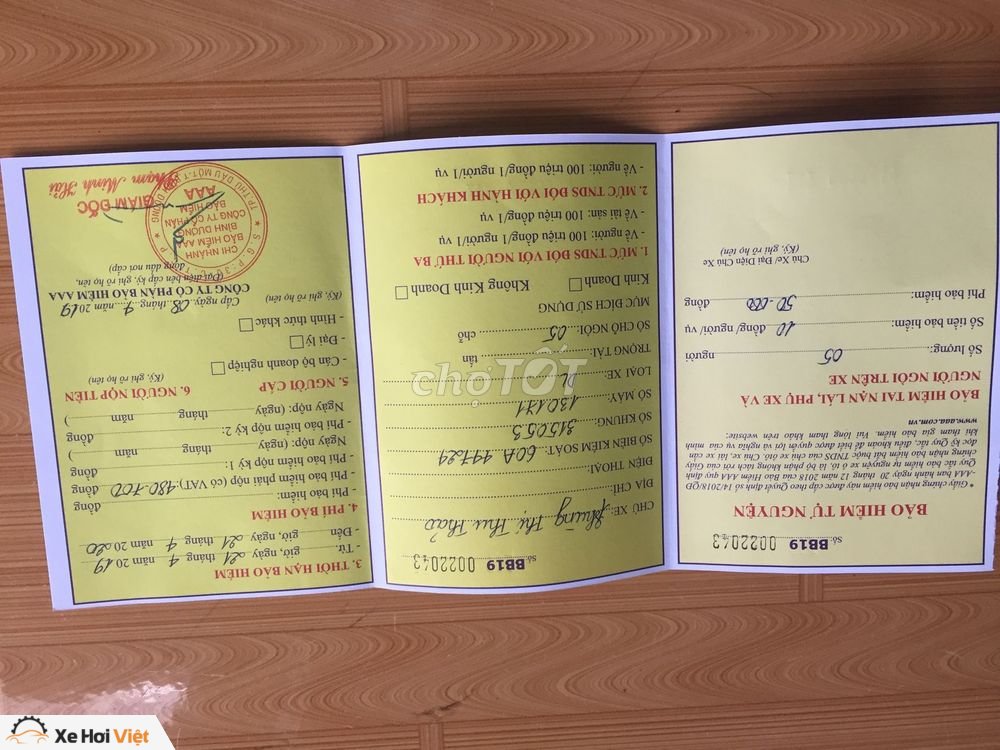 BẢO HIỂM TỰ NGUYỆN
* Giấy chứng nhận bảo hiểm này được cấp theo Quyết định số 14/2018/QĐ
-AAA ban hành ngày 20 tháng 12 năm 2018 của Bảo Hiểm AAA quy định
Quy tắc bảo hiểm tự nguyện xe ô tô, là bộ phận không tách rời của Giấy
chứng nhận bảo hiểm bắt buộc TNDS của chủ xe ô tô. Chủ xe, lái xe cần
đọc kỹ Quy tắc, điều khoản để biết được quyền lợi và nghĩa vụ của mình
khi tham gia bảo hiểm. Vui lòng tham khảo trên website:
www.aaa.com.vn
BẢO HIỂM TAI NẠN LÁI, PHỤ XE VÀ
NGƯỜI NGỒI TRÊN XE
Số lượng: 05 người
Số tiền bảo hiểm: 10 đồng/ người/ vụ
Phí bảo hiểm: 50.000 đồng
Chủ Xe/ Đại Diện Chủ Xe
(Ký, ghi rõ họ tên)
Số: BB19 0022043
Số: BB19 0022043
CHỦ XE: Phùng Thị Thu Thảo
ĐỊA CHỈ:
ĐIỆN THOẠI:
SỐ BIỂN KIỂM SOÁT: 60A
SỐ KHUNG: 315053
SỐ MÁY: 130171
LOẠI XE: DL
TRỌNG TẢI: tấn
SỐ CHỖ NGỒI: 05 chỗ
MỤC ĐÍCH SỬ DỤNG
Kinh Doanh Không Kinh Doanh
1. MỨC TNDS ĐỐI VỚI NGƯỜI THỨ BA
- Về người: 100 triệu đồng/1 người/1 vụ
- Về tài sản: 100 triệu đồng/1 vụ
2. MỨC TNDS ĐỐI VỚI HÀNH KHÁCH
- Về người: 100 triệu đồng/1 người/1 vụ
3. THỜI HẠN BẢO HIỂM
- Từ: giờ, ngày 21 tháng 7 năm 2019
- Đến giờ, ngày 21 tháng 7 năm 2020
4. PHÍ BẢO HIỂM
- Phí bảo hiểm: đồng
- Phí bảo hiểm phải nộp (có VAT): 480.700 đồng
- Phí bảo hiểm nộp kỳ 1: đồng
Ngày nộp: (ngày tháng năm )
- Phí bảo hiểm nộp kỳ 2: đồng
Ngày nộp: (ngày tháng năm )
5. NGƯỜI CẤP 6. NGƯỜI NỘP TIỀN
(Ký, ghi rõ họ tên)
- Cán bộ doanh nghiệp
- Đại lý
- Hình thức khác
(Ký, ghi rõ họ tên)
Cấp ngày 08 tháng 7 năm 2019
CÔNG TY CỔ PHẦN BẢO HIỂM AAA
(Đại diện bên cấp ký, ghi rõ họ tên,
đóng dấu nơi cấp)
CHI NHÁNH
BẢO HIỂM AAA
BÌNH DƯƠNG
CÔNG TY CỔ PHẦN
BẢO HIỂM
AAA
GIÁM ĐỐC
Phạm Minh Hải
chợTỐT
Xe Hơi Việt